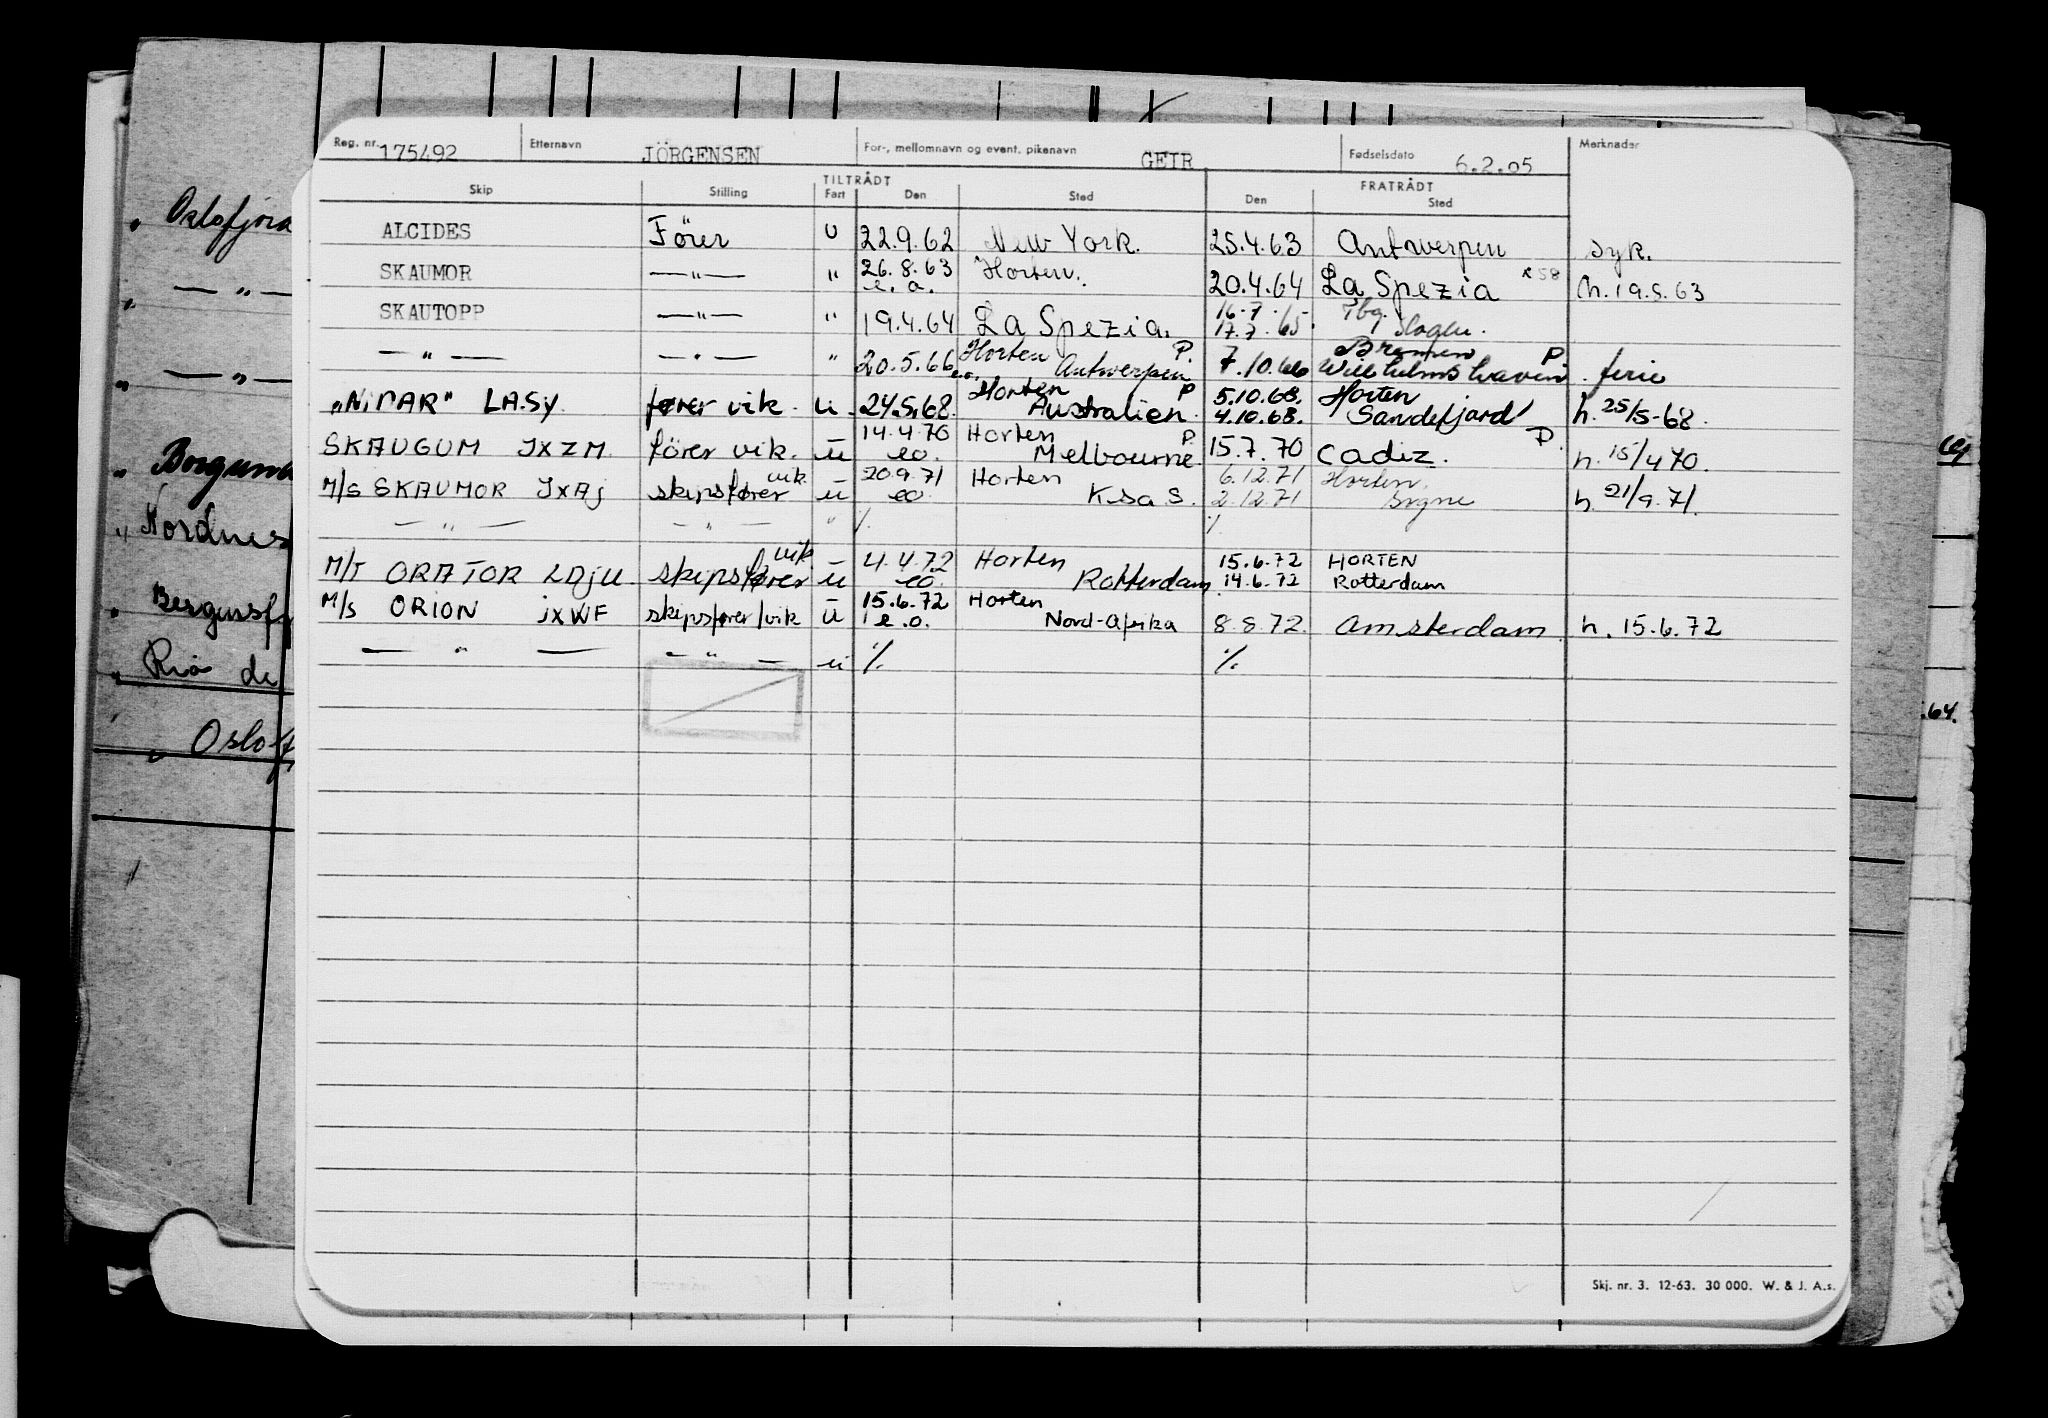 Reg. nr. 175492 Etternavn JÖRGENSEN For-, mellomnavn og event. pikenavn GEIR Fødselsdato 6.2.05 Merknader
TILTRÅDT FRATRÅDT
Skip Stilling Fart Den Sted Den Sted
ALCIDES Fører U 22.9.62 New York. 25.4.63 Antwerpen syk.
SKAUMOR — " — " 26.8.63 e.o. Horten. 20.4.64 La Spezia h. 19.5.63
SKAUTOPP — " — " 19.4.64 La Spezia. 16.7. 17.7.65. Tbg.
— " — — " — " 20.5.66 e.o. Horten P. Antwerpen 7.10.66 Bremen P Wilhelmshaven. ferie
LASY fører vik. u. 24.5.68. Horten P Australien. 5.10.68. 4.10.68. Horten Sandefjord h. 25/5-68.
SKAUGUM JXZM fører vik. u 14.4.70 eo. Horten P. Melbourne 15.7.70 Cadiz. P. h. 15/4 70.
M/S SKAUMOR JXAJ skipsfører vik u 20.9.71 eo. Horten 6.12.71 2.12.71 Horten. h. 21/9.71.
— " — — " — " %. %
M/T ORATOR LDJU skipsfører vik u 4.4.72 eo. Horten Rotterdam 15.6.72 14.6.72 HORTEN Rotterdam
M/S ORION JXWF skipsfører/vik u 15.6.72 e.o. Horten Nord-Afrika 8.8.72. Amsterdam. h. 15.6.72
— " — — " — u % %
Oslofjord
— " —
— " —
Nordnes
Rio de
Oslof
64.
Skj. nr. 3. 12-63. 30 000. W. & J. A.s.